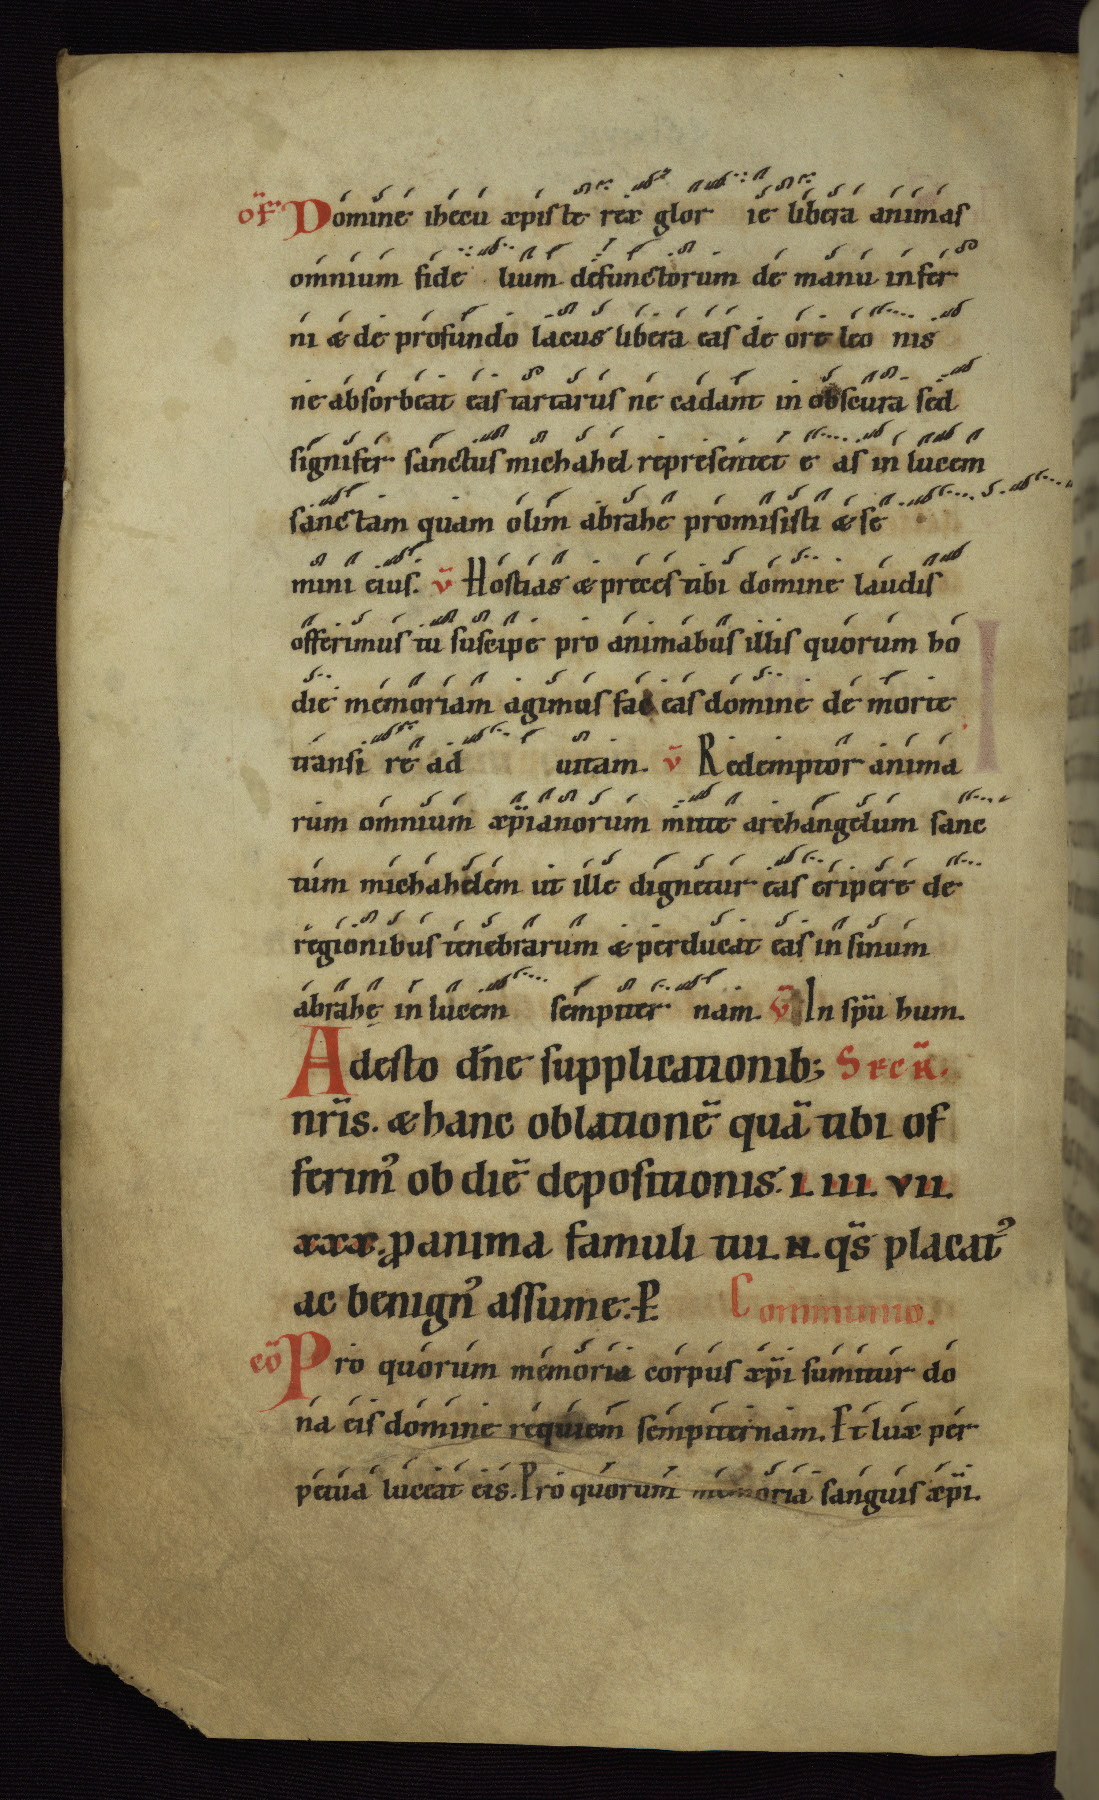 of Domine ihecu xpiste rex glor ie libera animas
omnium fide lium defunctorum de manu infer
ni & de profundo lacus libera eas de ore leo nis
ne absorbeat eas tartarus ne cadant in obscura sed
signifer sanctus michahel representet e as in lucem
sanctam quam olim abrahe promisisti & se
mini eius. v̄ Hostias & preces tibi domine laudis
offerimus tu suscipe pro animabus illis quorum ho
die memoriam agimus fac eas domine de morte
transi re ad uitam. v̄ Redemptor anima
rum omnium xp̄ianorum mitte archangelum sanc
tum michahelem ut ille dignetur eas eripere de
regionibus tenebrarum & perducat eas in sinum
abrahę in lucem sempiter nam. v̄ In sp̄u hum.
Adesto dn̄e supplicationib; Secr̄.
nr̄is. & hanc oblationē quā tibi of
ferim᾽ ob diē depositionis. i. iii. vii.
xxx. ꝓ anima famuli tui. N. qs̄ placat᾽
ac benign᾽ assume. P. Communio.
cō Pro quorum memoria corpus xp̄i sumitur do
na eis domine requiem sempiternam. Et lux per
petua luceat eis. Pro quorum memoria sanguis xp̄i.